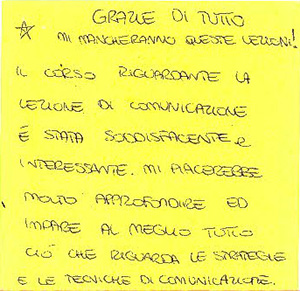 GRAZIE DI TUTTO
MI MANCHERANNO QUESTE LEZIONI!
IL CORSO RIGUARDANTE LA
LEZIONE DI COMUNICAZIONE
É STATA SODDISFACENTE E
INTERESSANTE. MI PIACEREBBE
MOLTO APPROFONDIRE ED
IMPARE AL MEGLIO TUTTO
CIÓ CHE RIGUARDA LE STRATEGIE
E LE TECNICHE DI COMUNICAZIONE.